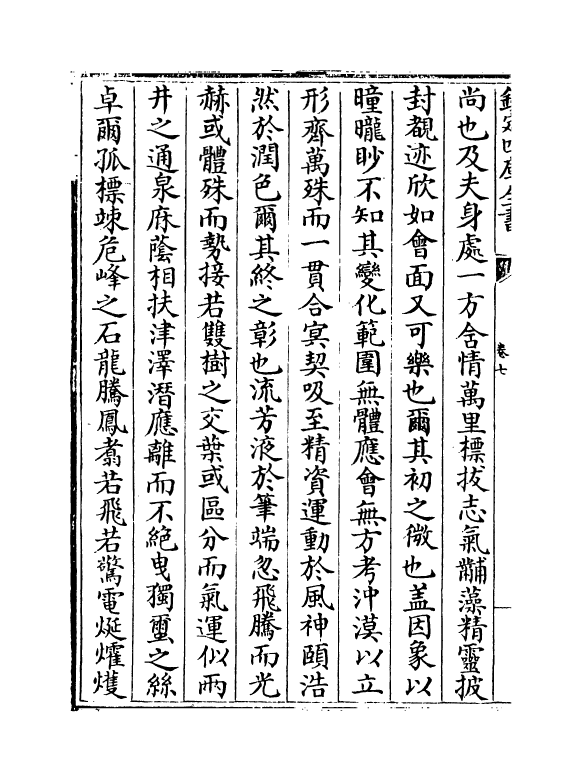 欽定四庫全書
卷七
尚也及夫身處一方含情萬里標拔志氣黼藻精靈披
封覩迹欣如會面又可樂也爾其初之微也盖因象以
曈曨眇不知其變化範圍無體應會無方考沖漠以立
形齊萬殊而一貫合冥契吸至精資運動於風神頤浩
然於潤色爾其終之彰也流芳液於筆端忽飛騰而光
赫或體殊而勢接若雙樹之交葉或區分而氣運似兩
井之通泉庥蔭相扶津澤潛應離而不絶曳獨蠒之絲
卓爾孤標竦危峰之石龍騰鳳翥若飛若驚電烻爠㸌